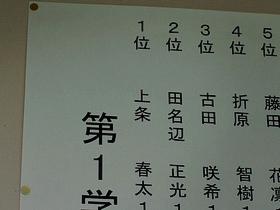 第1学
1位 上条 春太1
2位 田名辺 正光1
3位 古田 咲希1
4位 折原 智樹1
5位 藤田 花凛